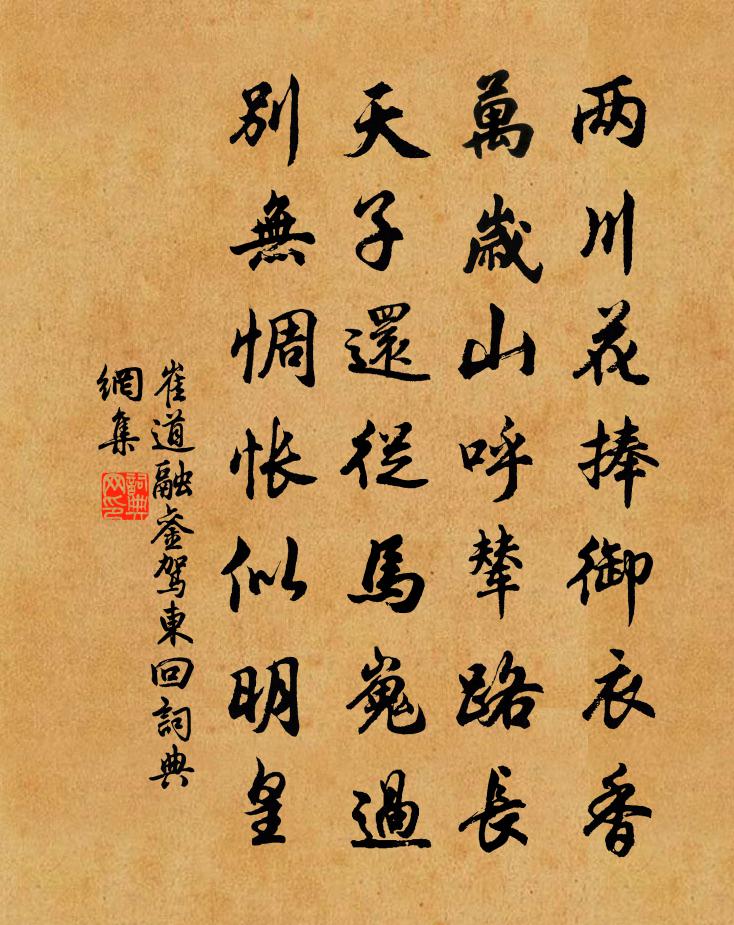 两川花捧御衣香
萬歲山呼輦路長
天子還從馬嵬過
別無惆怅似明皇
崔道融銮駕東回詞典
網集
詞典
网印